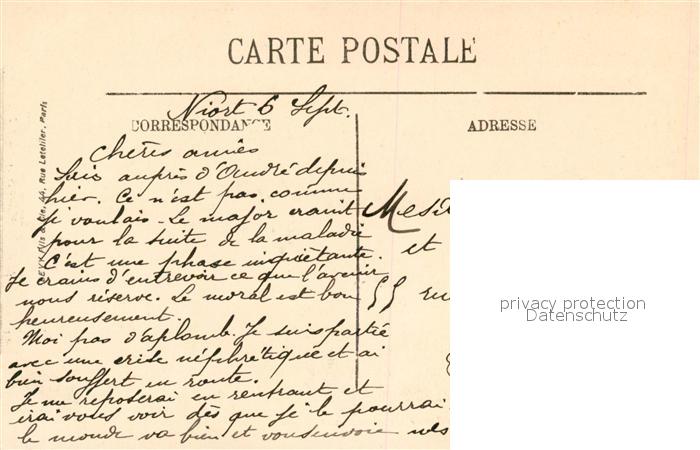 CARTE POSTALE
Niort 6 Sept.
CORRESPONDANCE
ADRESSE
Chères amies
Suis auprès d'André depuis
hier. Ce n'est pas comme
je voulais. Le major craint
pour la suite de la maladie
C'est une phase inquiétante.
Je crains d'entrevoir ce que l'avenir
nous réserve. Le moral est bon
heureusement.
Moi pas d'aplomb. Je suis partie
avec une crise néphrétique et ai
bien souffert en route.
Je me reposerai en rentrant et
irai vous voir dès que je le pourrai.
le monde va bien et vous envoie mes
et
privacy protection
Datenschutz
Fils & Cie, 44, Rue Letellier, Paris